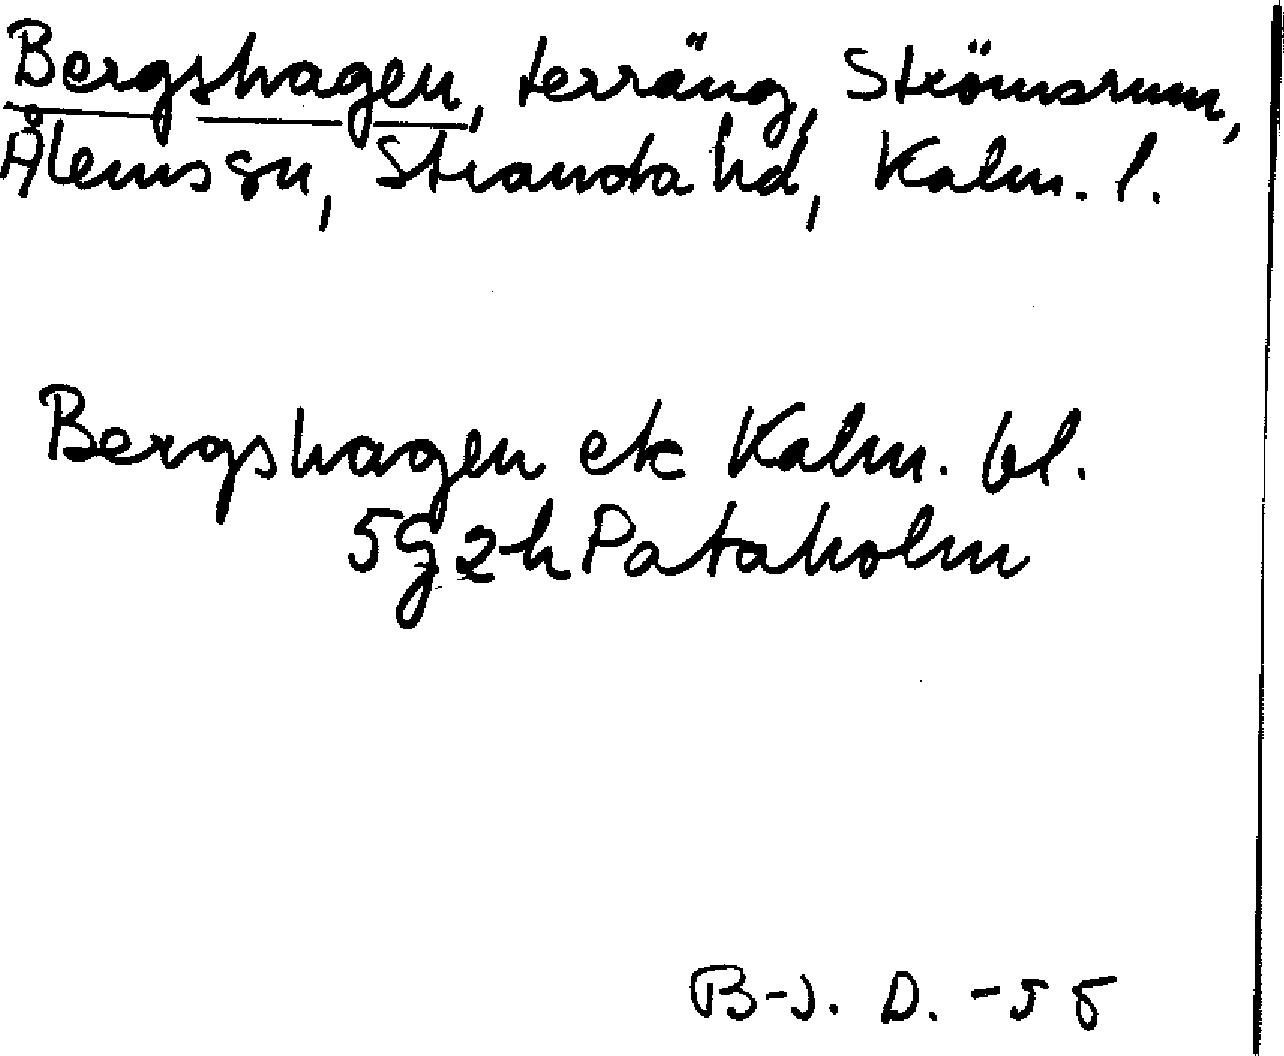 Bergshagen, terräng, Strömsrum,
Ålems sn, Stranda hd, Kalm. l.
Bergshagen ek Kalm. bl.
5g2h Pataholm
B-J. D. -55